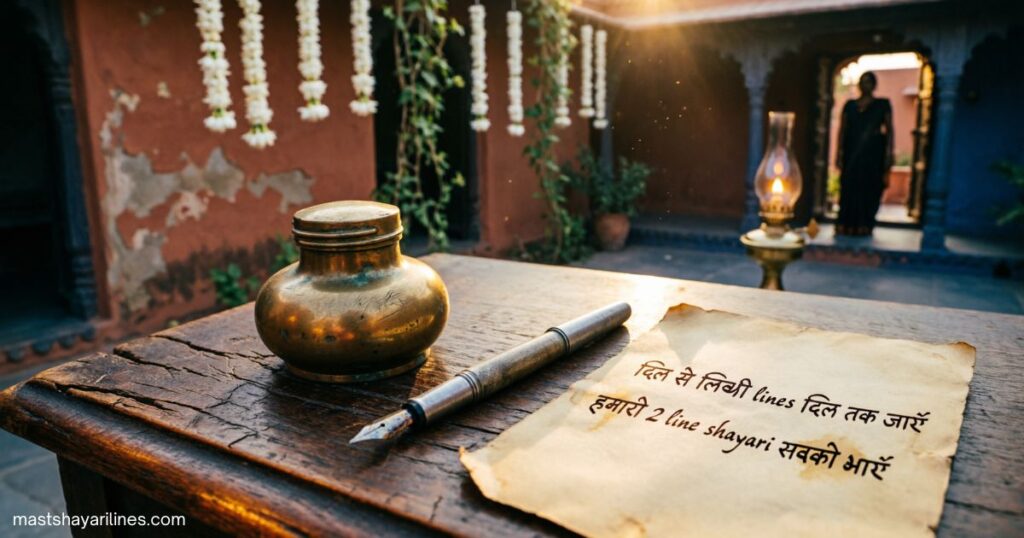 दिल से लिखी lines दिल तक जाएँ
हमारी 2 line shayari सबको भाएँ
mastshayarilines.com